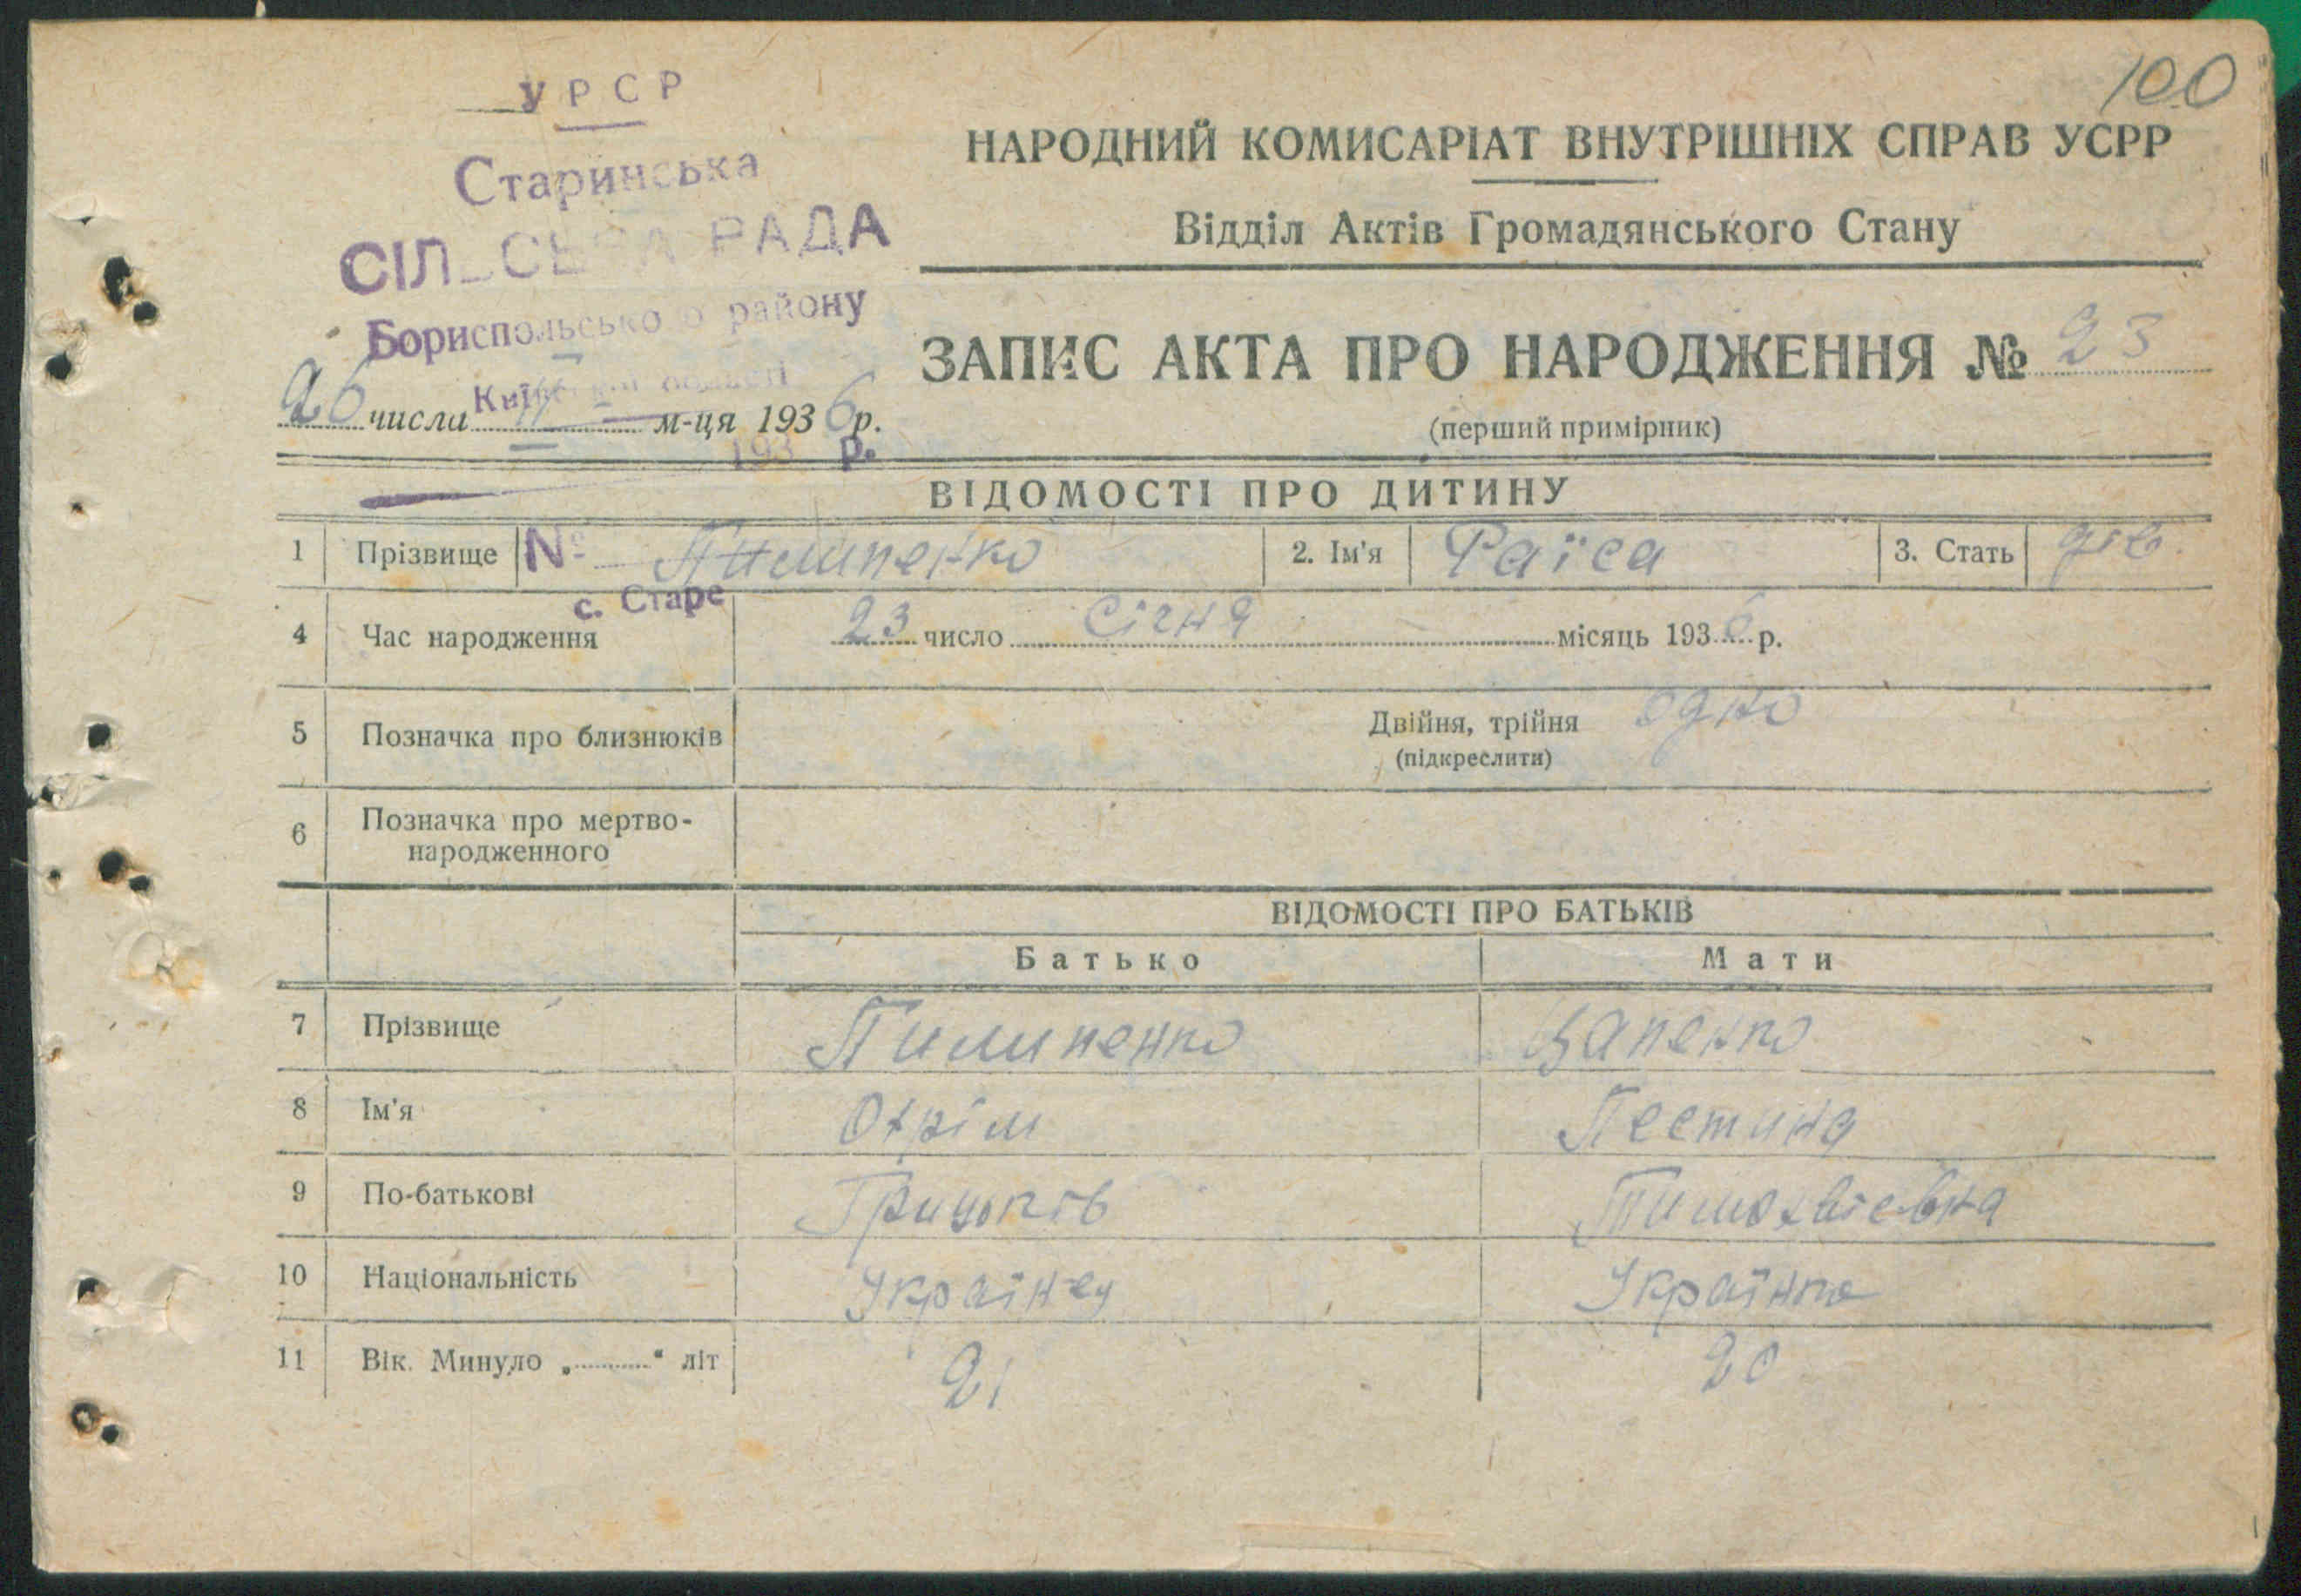 100
У Р С Р
Старинська
СІЛЬСЬКА РАДА
Бориспольського району
Київської області
193 р.
26 числа II м-ця 1936 р.
НАРОДНИЙ КОМИСАРІАТ ВНУТРІШНІХ СПРАВ УСРР
Відділ Актів Громадянського Стану
ЗАПИС АКТА ПРО НАРОДЖЕННЯ № 23
(перший примірник)
ВІДОМОСТІ ПРО ДИТИНУ
1 Прізвище Пилипенко 2. Ім'я Раїса 3. Стать дів.
№
с. Старе
4 Час народження 23 число Січня місяць 1936 р.
5 Позначка про близнюків Двійня, трійня одно
(підкреслити)
6 Позначка про мертво-
народженного
ВІДОМОСТІ ПРО БАТЬКІВ
Батько Мати
7 Прізвище Пилипенко Цапенко
8 Ім'я Охрім Пестина
9 По-батькові Грицьків Тимохвієвна
10 Національність Українец Українка
11 Вік. Минуло „ “ літ 21 20